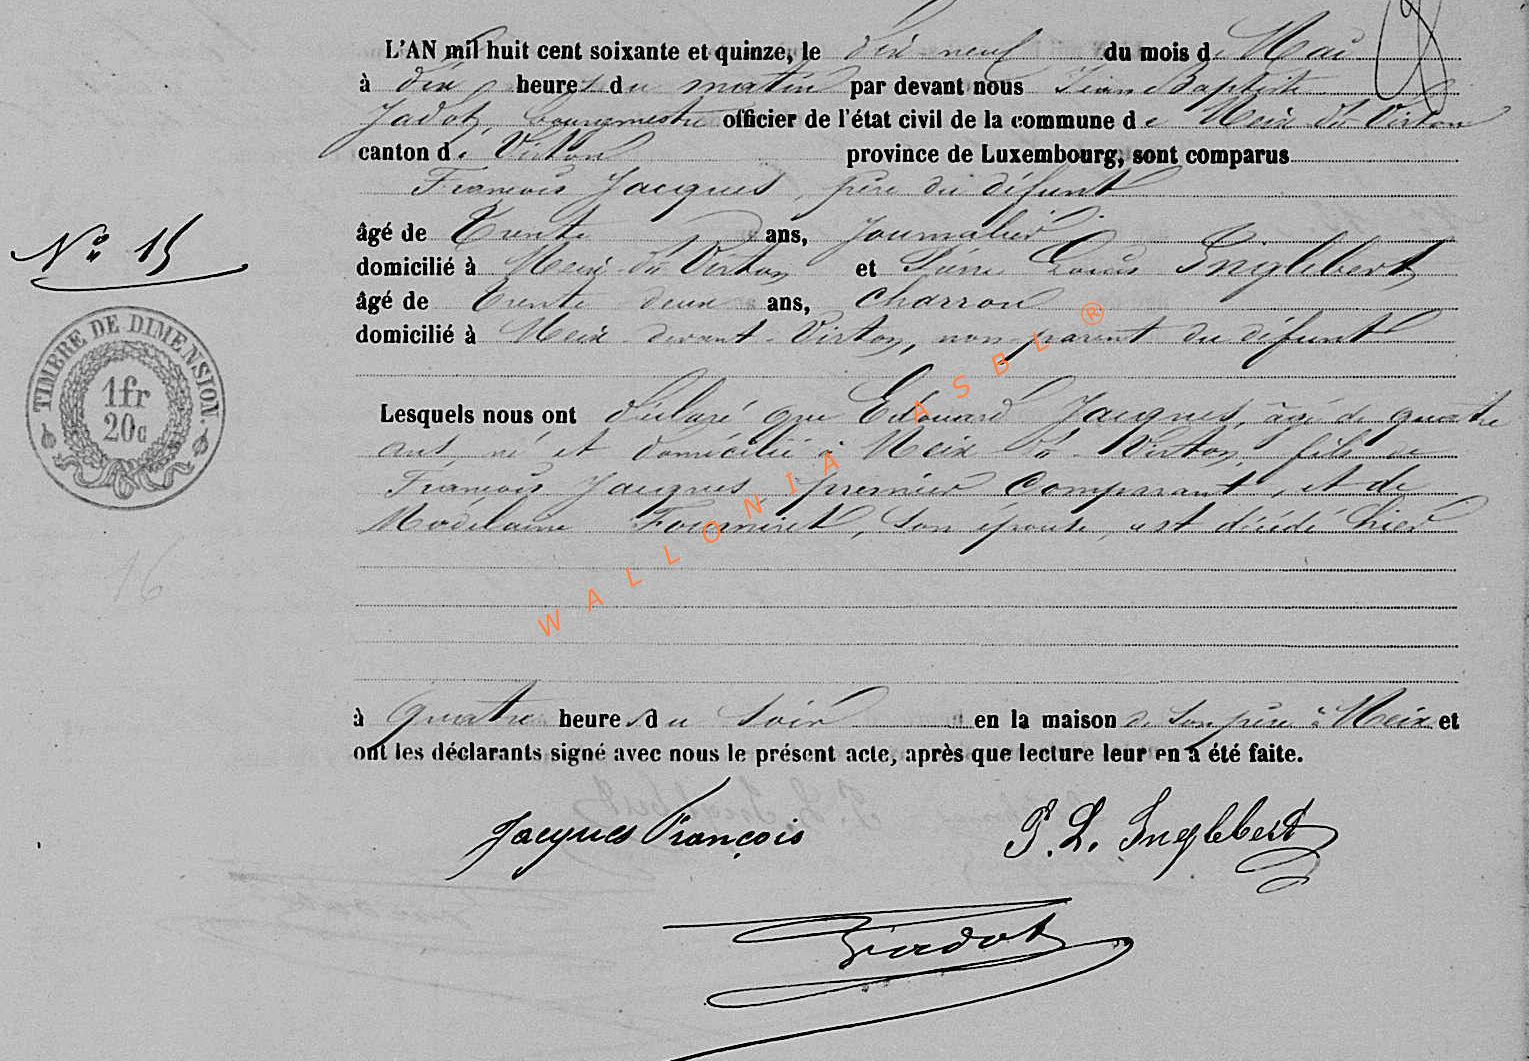 L'AN mil huit cent soixante et quinze, le dix neuf du mois de Mai
à dix heures du matin par devant nous Jean Baptiste
Jadot, bourgmestre officier de l'état civil de la commune de Meix dt Virton
canton de Virton province de Luxembourg, sont comparus
François Jacques, père du défunt
âgé de trente ans, Journalier
domicilié à Meix dt Virton et Pierre Louis Inglebert
âgé de trente deux ans, charron
domicilié à Meix-devant-Virton, non parent du défunt
Lesquels nous ont déclaré que Edouard Jacques, âgé de quatre
ans, né et domicilié à Meix dt Virton, fils de
François Jacques, premier comparant, et de
Madelaine Fourniret, son épouse, est décédé hier
à quatre heures du soir en la maison de son père à Meix et
ont les déclarants signé avec nous le présent acte, après que lecture leur en a été faite.
Jacques François P. L. Inglebert
Jadot
N° 15
TIMBRE DE DIMENSION.
1fr
20c
16
WALLONIA ASBL ®